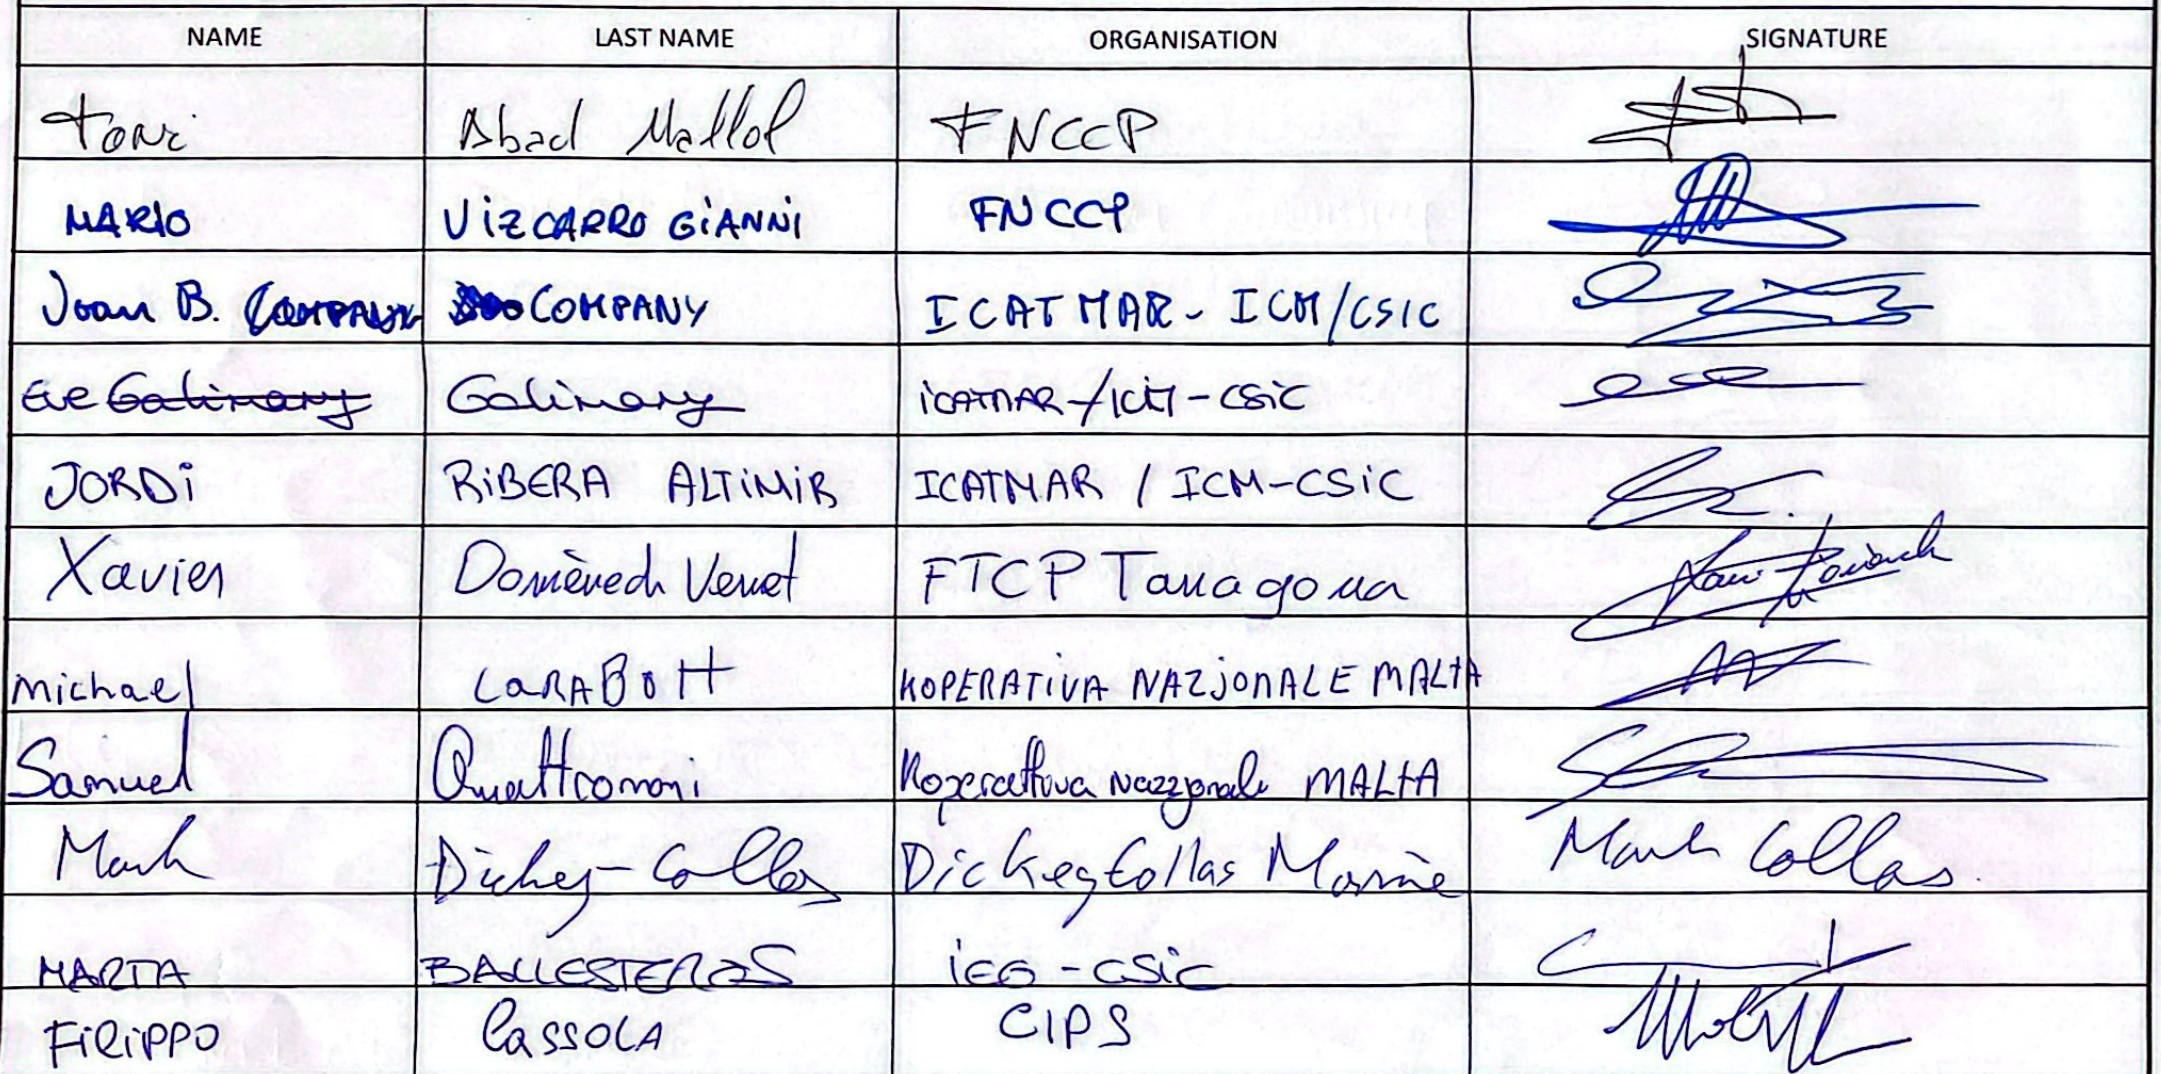 NAME LAST NAME ORGANISATION SIGNATURE
Toni Abad Mallol FNCCP
MARIO VIZCARRO GIANNI FNCCP
Joan B. COMPANY COMPANY ICATMAR - ICM/CSIC
Eve Galimany Galimany ICATMAR/ICM-CSIC
JORDI RIBERA ALTIMIR ICATMAR / ICM-CSIC
Xavier Domènech Vernet FTCP Tarragona
Michael CARABOTT KOPERATIVA NAZJONALE MALTA
Samuel Quattromani MALTA
Mark Dickey-Collas DickeyCollas Marine Mark Collas.
MARTA BALLESTEROS CSIC
FILIPPO CASSOLA CIPS